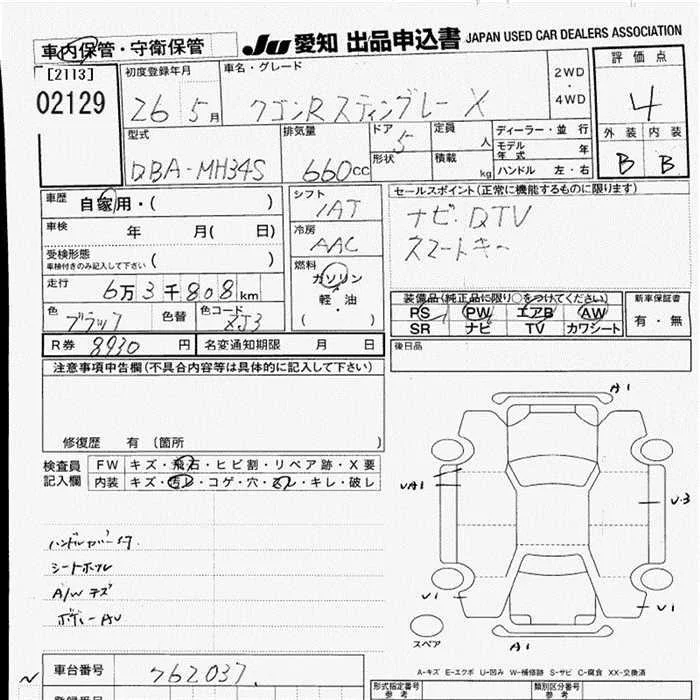 車内保管・守衛保管
Ju 愛知 出品申込書 JAPAN USED CAR DEALERS ASSOCIATION
[2113]
02129
初度登録年月
26 5月
車名・グレード
ワゴンR スティングレー X
2WD
・
4WD
評価点
4
外装 内装
B B
型式
DBA-MH34S
排気量
660cc
ドア
5
形状
定員
人
積載
kg
ディーラー・並行
モデル年式 年
ハンドル 左・右
車歴
自家用・( )
車検
年 月( 日)
受検形態
車検付きのみ記入して下さい ( )
走行
6万3千808km
色
ブラック
色替
色コード
ZJ3
シフト
IAT
冷房
AAC
燃料
ガソリン
・
軽・油
( )
セールスポイント(正常に機能するものに限ります)
ナビ・DTV
スマートキー
装備品(純正品に限り○をつけてください)
PS PW エアB AW
SR ナビ TV カワシート
新車保証書
有・無
R券 8930 円
名変通知期限 月 日
後日品
注意事項申告欄(不具合内容等は具体的に記入して下さい)
修復歴 有 (箇所 )
検査員記入欄
FW キズ・飛石・ヒビ割・リペア跡・X要
内装 キズ・汚レ・コゲ・穴・スレ・キレ・破レ
シートホツレ
A/W キズ
ボディーAU
A1
UA1
U3
U1
U1
A1
スペア
A-キズ E-エクボ U-凹み W-補修跡 S-サビ C-腐食 XX-交換済
車台番号
762037
形式指定番号
参考
類別区分番号
参考
登録番号